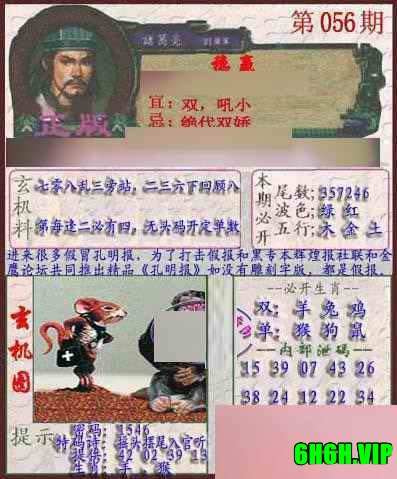 第056期
諸葛亮
稳赢
宜：双，吼小
忌：绝代双娇
正版
玄机料
七零八乱三旁站，二三六下回顾八
第每逢二必有四，无头码开定单数
本期必开
尾数;357246
波色;绿 红
五行;木 金 土
进来很多假冒孔明报，为了打击假报和黑专本辉煌报社联和金
鹰论坛共同推出精品《孔明报》如没有雕刻字版，都是假报。
玄机图
必开生肖
双: 羊 兔 鸡
单: 猴 狗 鼠
内部泄码
15 39 07 43 26
38 24 12 22 34
提示
密码: 1546
特码诗: 摇头摆尾入官听
提供: 42 02 39 13
生肖: 羊、猴
6HGH.VIP